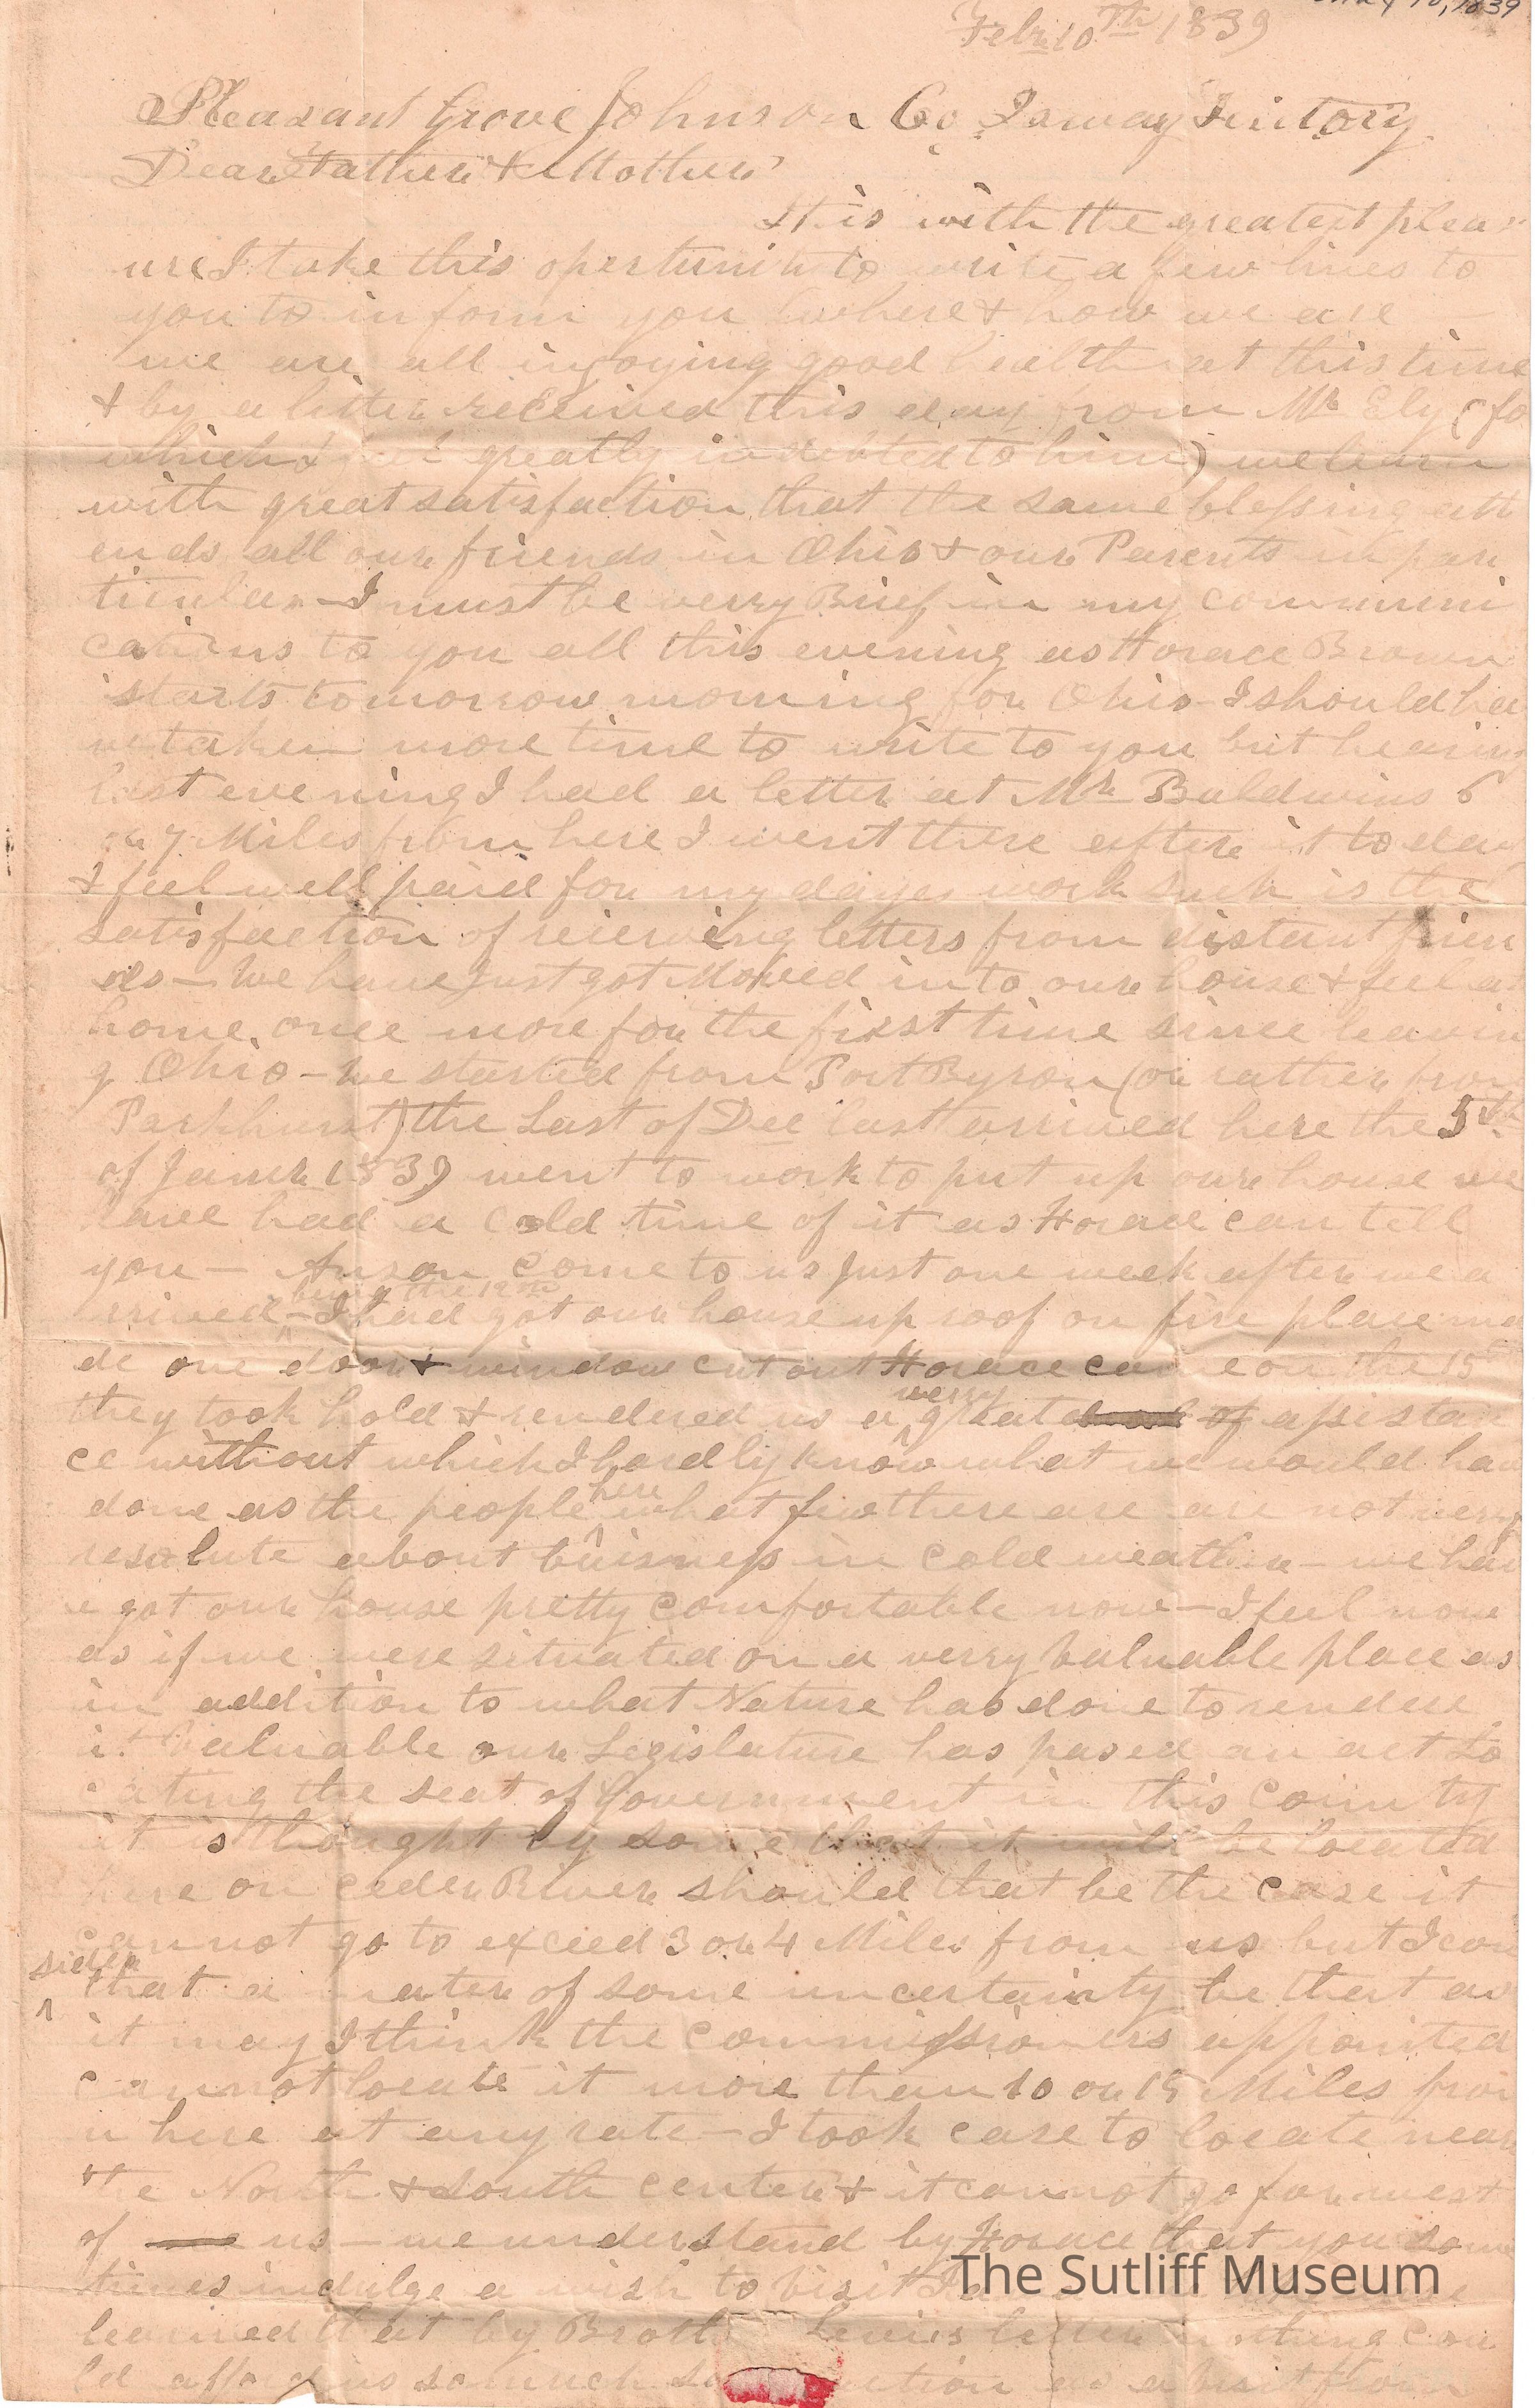 10, 1839
Febr 10th 1839
Pleasant Grove Johnson Co Ioway Teritory
Dear Father & Mother
It is with the greatest pleas
ure I take this opertunity to write a few lines to
you to inform you where & how we are
we are all injoying good health at this time
& by a letter received this day from Mr Ely (fo
which I feel greatly indebted to him) we learn
with great satisfaction that the same blessing att
ends all our friends in Ohio & our Parents in par
ticular - I must be verry Brief in my communi
cations to you all this evening as Horace Brown
starts tomorrow morning for Ohio - I should ha
ve taken more time to write to you but hearing
last evening I had a letter at Mr Baldwins 6
or 7 Miles from here I went there after it to day
& feel well paid for my days work such is the
satisfaction of reieving letters from distant frien
ds - We have just got Moved in to our house & feel at
home once more for the first time since leavin
g Ohio - We started from Port Byron (or rather from
Parkhurst) the Last of Dec last arrived here the 5th
of Janur 1839 went to work to put up our house we
have had a cold time of it as Horace can tell
you - Anson come to us just one week after we a
being the 12th
rrived - I had got our house up roof on fire place ma
de one door & window cut out Horace came on the 15th
they took hold & rendered us a verry great of assistan
ce without which I hardly know what we would hav
done as the people here what few there are are not verry
resolute about buisness in cold weather - we hav
e got our house pretty comfortable now - I feel now
as if we were situated on a verry valuable place as
in addition to what Nature has done to render
it valuable our Legislature has pased an act Lo
cating the seat of Government in this County
it is thought by some that it will be located
here on Ceder River should that be the case it
cannot go to exceed 3 or 4 Miles from us but I con
sider
that a mater of some uncertainty be that as
it may I think the commissioners appointed
cannot locate it more than 10 or 15 Miles fro
m here at any rate - I took care to locate near
the North & South center & it cannot go far west
of us - we understand by Horace that you some
times indulge a wish to visit
learned that by Broth Lewis letter nothing cou
ld afford us so much as a visit from
The Sutliff Museum